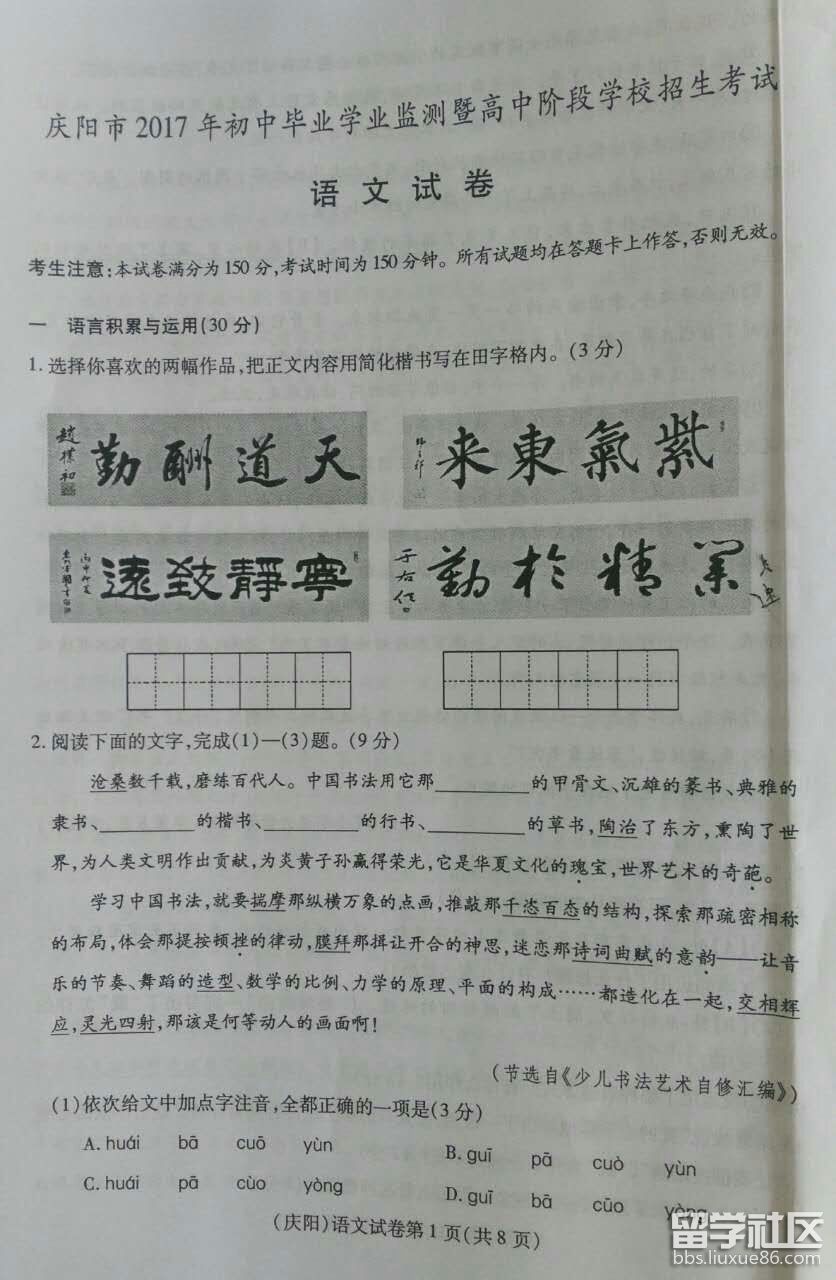 庆阳市2017年初中毕业学业监测暨高中阶段学校招生考试
语文试卷
考生注意:本试卷满分为150分,考试时间为150分钟。所有试题均在答题卡上作答,否则无效。
一 语言积累与运用(30分)
1.选择你喜欢的两幅作品,把正文内容用简化楷书写在田字格内。(3分)
趙樸初 勤酬道天
来東氣紫
遠致靜寧
于右任 勤於精業
2.阅读下面的文字,完成(1)—(3)题。(9分)
沧桑数千载,磨练百代人。中国书法用它那________的甲骨文、沉雄的篆书、典雅的
隶书、________的楷书、________的行书、________的草书,陶治了东方,熏陶了世
界,为人类文明作出贡献,为炎黄子孙赢得荣光,它是华夏文化的瑰宝,世界艺术的奇葩。
学习中国书法,就要揣摩那纵横万象的点画,推敲那千恣百态的结构,探索那疏密相称
的布局,体会那提按顿挫的律动,膜拜那揖让开合的神思,迷恋那诗词曲赋的意韵——让音
乐的节奏、舞蹈的造型、数学的比例、力学的原理、平面的构成……都造化在一起,交相辉
应,灵光四射,那该是何等动人的画面啊!
(节选自《少儿书法艺术自修汇编》)
(1)依次给文中加点字注音,全都正确的一项是(3分)
A. huái bā cuō yùn B. guī pā cuò yùn
C. huái pā cùo yòng D. guī bā cūo yòng
(庆阳)语文试卷第1页(共8页)
留学社区
bbs.liuxue86.com